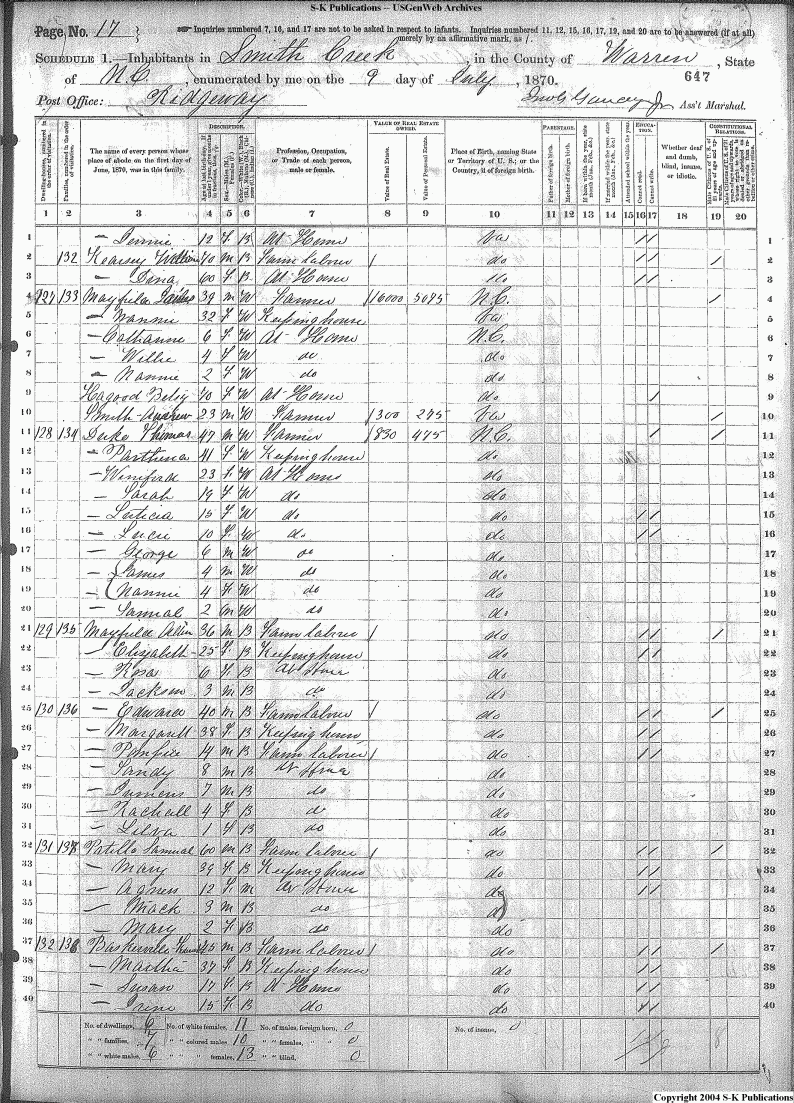 S-K Publications -- USGenWeb Archives
Page No. 17
Inquiries numbered 7, 16, and 17 are not to be asked in respect to infants. Inquiries numbered 11, 12, 15, 16, 17, 19, and 20 are to be answered (if at all) merely by an affirmative mark, as /.
SCHEDULE 1.—Inhabitants in Smith Creek, in the County of Warren, State
of N.C., enumerated by me on the 9 day of July, 1870. 647
Post Office: Ridgeway Ass't Marshal.
DESCRIPTION. VALUE OF REAL ESTATE OWNED. PARENTAGE. EDUCATION. CONSTITUTIONAL RELATIONS.
Dwelling-houses, numbered in the order of visitation.
Families, numbered in the order of visitation.
The name of every person whose place of abode on the first day of June, 1870, was in this family.
Profession, Occupation, or Trade of each person, male or female.
Value of Real Estate.
Value of Personal Estate.
Place of Birth, naming State or Territory of U. S.; or the Country, if of foreign birth.
Father of foreign birth.
Mother of foreign birth.
Attended school within the year.
Cannot read.
Cannot write.
Whether deaf and dumb, blind, insane, or idiotic.
1 2 3 4 5 6 7 8 9 10 11 12 13 14 15 16 17 18 19 20
1 — 12 F B At Home Va / / 1
2 132 Kearsey William 70 M B Farm laborer / do / / / 2
3 — Dina 60 F B At Home do / / 3
4 127 133 39 M W Farmer 16000 5095 N.C. / 4
5 — Nannie 32 F W Keeping house Va 5
6 — Catharine 6 F W At Home N.C. 6
7 — Willie 4 F W do do 7
8 — Nannie 2 F W do do 8
9 Hagood Betsy 70 F W At Home do / 9
10 Smith Andrew 23 M W Farmer 300 275 Va / 10
11 128 134 Duke Thomas 47 M W Farmer 830 475 N.C. / / 11
12 — Parthena 41 F W Keeping house do 12
13 — Winiford 23 F W At Home do 13
14 — Sarah 19 F W do do 14
15 — Luticia 15 F W do do / / 15
16 — Luci 10 F W do do / / 16
17 — George 6 M W do do 17
18 — James 4 M W do do 18
19 — Nannie 4 F W do do 19
20 — Samual 2 M W do do 20
21 129 135 Mayfield 36 M B Farm laborer / do / / / 21
22 — Elizabeth 25 F B Keeping house do / / 22
23 — Rosa 6 F B At Home do 23
24 — Jackson 3 M B do do 24
25 130 136 — Edward 40 M B Farm laborer / do / / / 25
26 — Margarett 38 F B Keeping house do / / 26
27 — 14 M B Farm laborer / do / / 27
28 — Sandy 8 M B At Home do 28
29 — 7 M B do do 29
30 — Rachell 4 F B do do 30
31 — 1 F B do do 31
32 131 137 Patillo Samual 60 M B Farm laborer / do / / / 32
33 — Mary 39 F B Keeping house do / / 33
34 — Agness 12 F M At Home do / / 34
35 — Mack 3 M B do do 35
36 — Mary 2 F B do do 36
37 132 138 Baskerville 45 M B Farm laborer / do / / / 37
38 — Martha 37 F B Keeping house do / / 38
39 — Susan 17 F B At Home do / / 39
40 — 15 F B do do / / 40
No. of dwellings, 6 No. of white females, 11 No. of males, foreign born, 0 No. of insane, 0
" " families, 7 " " colored males, 10 " " females, " " 0
" " white males, 6 " " females, 13 " " blind, 0
8
Copyright 2004 S-K Publications